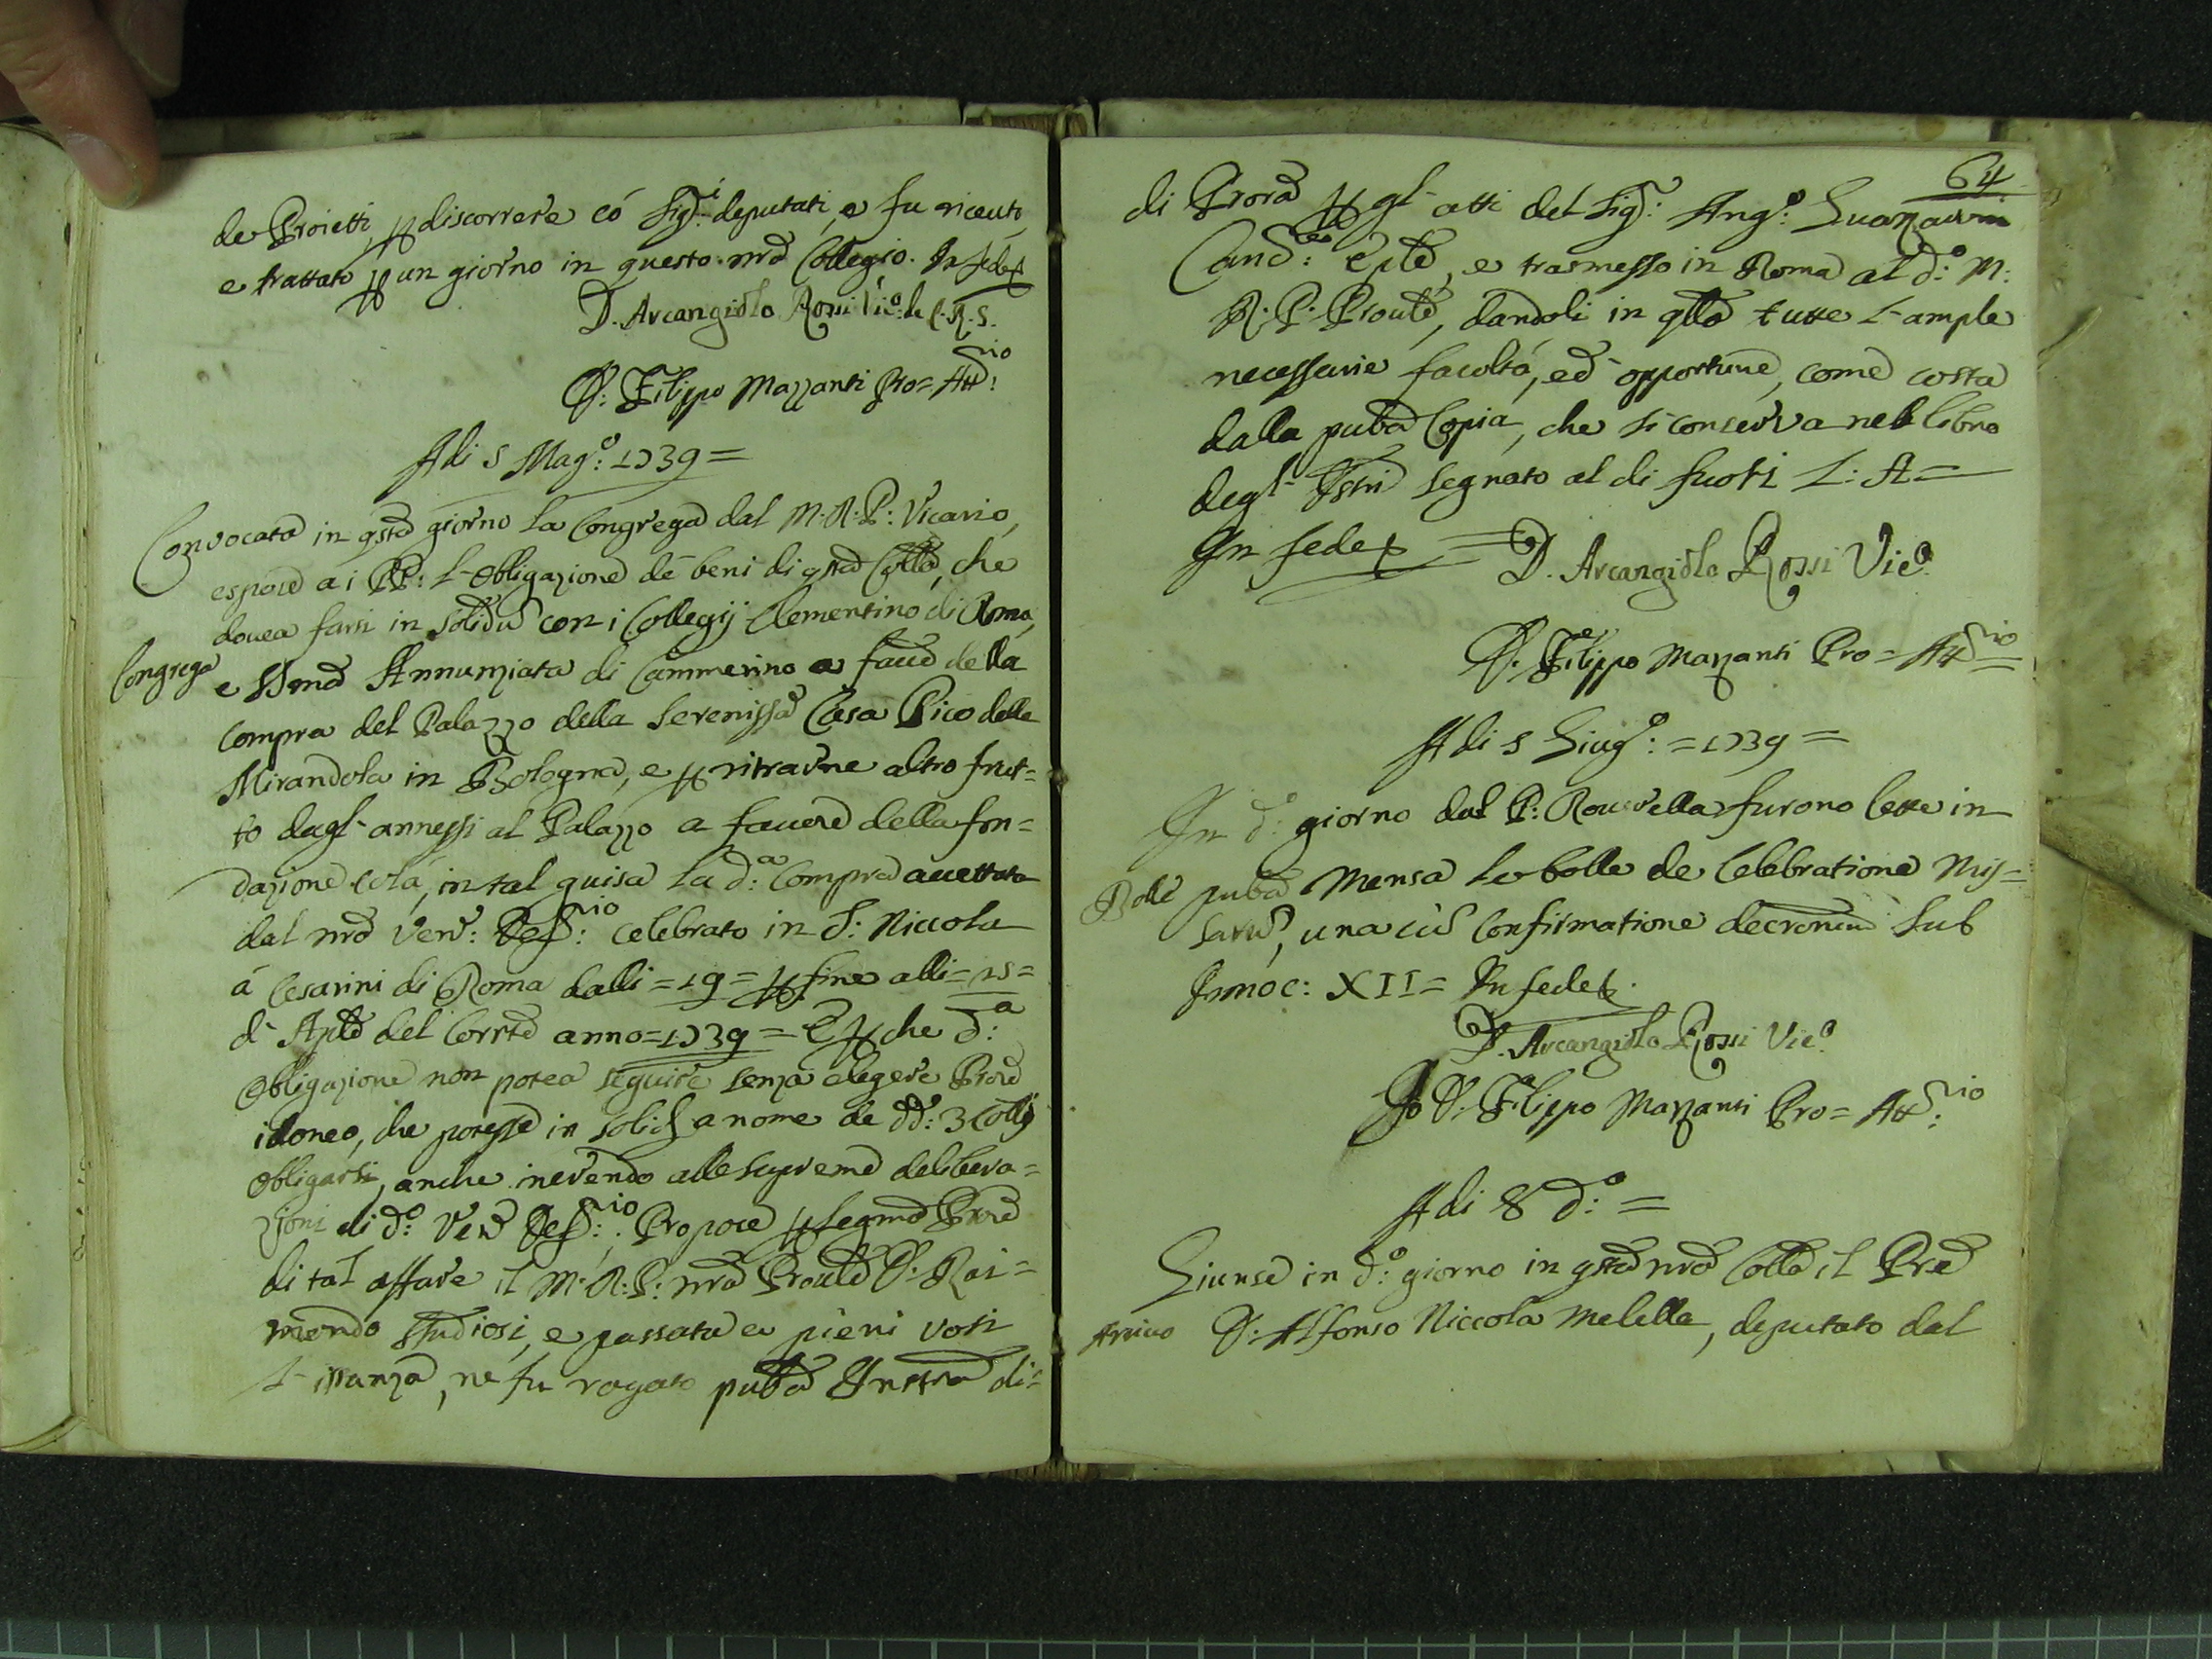 de Proietti, p discorrere có Sig:ri deputati, e fu riceuto,
e trattato p un giorno in questo nrõ Collegio. In fede
D. Arcangiolo Rossi Vic:o de C.R.S.
D: Filippo Mazzanti Pro= Att:rio
A di 5 Mag:o 1739=
Convocata in qsto giorno la Congrega dal M:R:P: Vicario,
espose a i PP: l'Obligazione de beni di qsto Collo, che
douea farsi in solidũ con i Collegij Clementino di Roma,
Congrega
e SSma Annunziata di Cammerino a fauõ della
compra del Palazzo della Serenissa Casa Pico della
Mirandola in Bologna, e p ritrarne altro frut=
to dagl'annessi al Palazzo a fauore della fon=
dazione colá, in tal guisa la d:a Compra accettata
dal nrõ Ven: Def:rio celebrato in S: Niccola
á Cesarini di Roma dalli =19= p fine alli =25=
d'Aple del Corrte anno=1739= E p che d:a
Obligazione non potea seguire senza elegere Prore
idoneo, che potesse in solid a nome de dd: 3 Collj
Obligarsi, anche inerendo alle supreme delibera=
zioni di d:o Ven Def:rio: Propose p Prore
di tal affare il M:R:P: nrõ Proule D: Rai=
mondo Studiosi, e passata a pieni voti
l'istanza, ne fu rogato pubo Instro di=
64
di Prora p gl'atti del Sig: Ang:o
Canc:e Eple, e trasmesso in Roma al d:o M:
R:P: Proule, dandoli in qllo tutte l'ample
necessarie facoltá, ed opportune, come costa
dalla puba Copia, che si conserva nel libro
degl' Istri segnato al di fuori L: A=
In fede D. Arcangiolo Rossi Vic:o
D: Filippo Mazzanti Pro= Att:rio=
A di 5 Giug:o =1739=
In d:o giorno dal P: Rouerella furono lette in
Bolle
puba Mensa le bolle de Celebratione Mis=
sarũ, una cũ Confirmatione decretorũ sub
Innoc: XII= In fede
D. Arcangiolo Rossi Vic:o
Io D: Filippo Mazzanti Pro= Att:rio
A di 8 d:o=
Giunse in d:o giorno in qsto nrõ Collo il Pre
Arriuo
D: Alfonso Niccola Melella, deputato dal